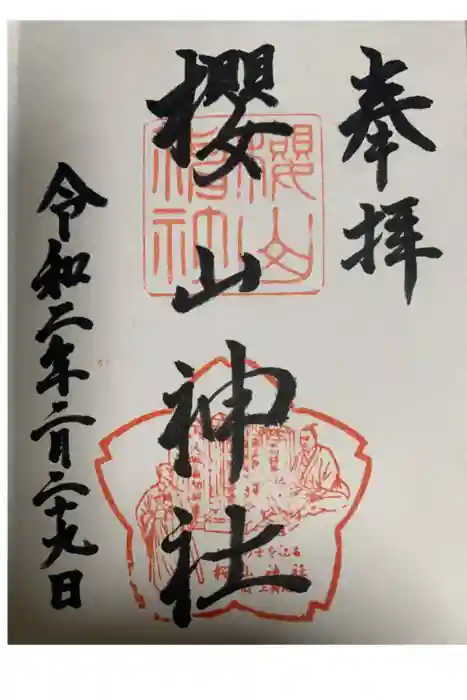 奉拝
櫻山神社
令和二年二月二十九日
櫻山
神社